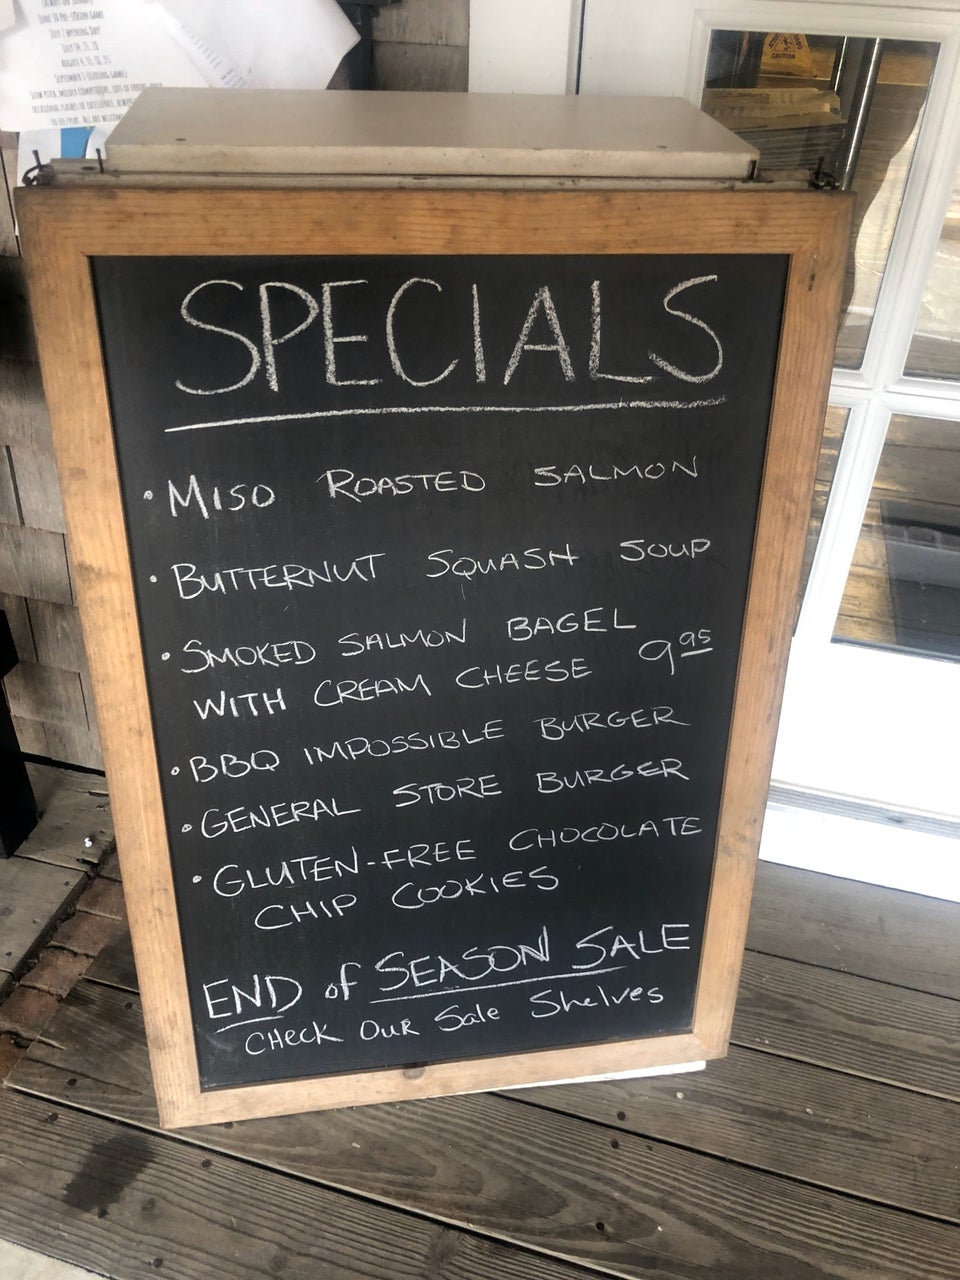 (ALWAYS ON SUNDAY)
JUNE 30 PRE-SEASON GAME
JULY 7 OPENING DAY!
JULY 14, 21, 28
AUGUST 4, 11, 18, 25
SEPTEMBER 1 (CLOSING GAME)
CAUTION
SPECIALS
• MISO ROASTED SALMON
• BUTTERNUT SQUASH SOUP
• SMOKED SALMON BAGEL
WITH CREAM CHEESE 9.95
• BBQ IMPOSSIBLE BURGER
• GENERAL STORE BURGER
• GLUTEN-FREE CHOCOLATE
CHIP COOKIES
END of SEASON SALE
CHECK OUR Sale Shelves